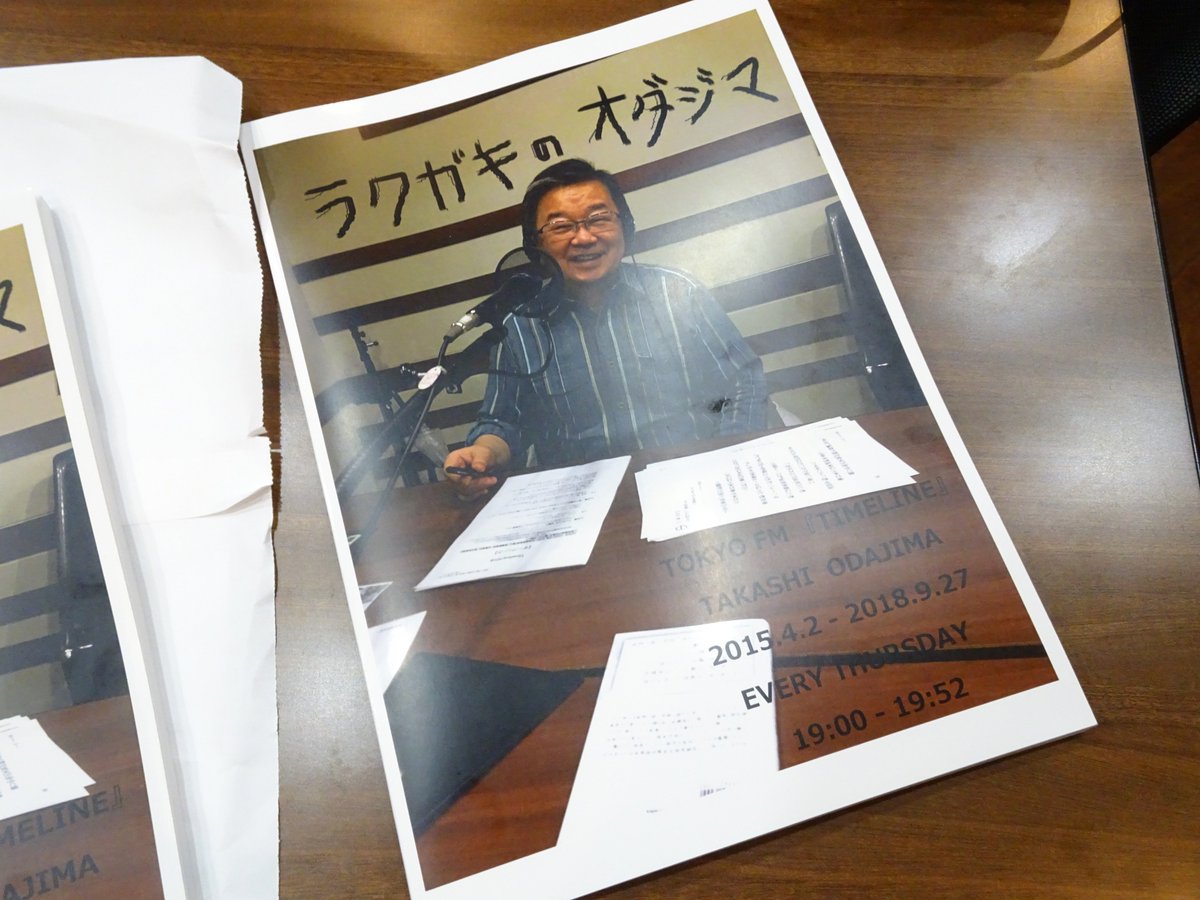 ラクガキの オダジマ
TOKYO FM 『TIMELINE』
TAKASHI ODAJIMA
2015.4.2 - 2018.9.27
EVERY THURSDAY
19:00 - 19:52
マ
MELINE』
AJIMA